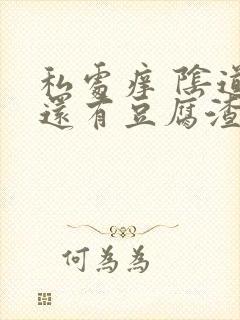 私處癢 陰道
還有豆腐渣
何為為